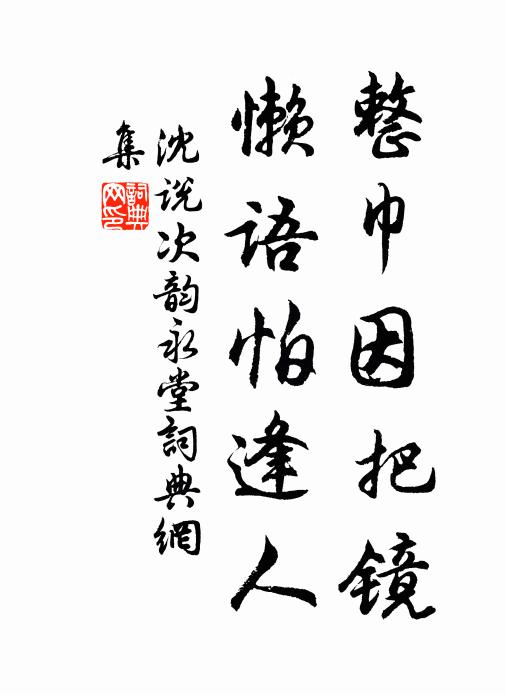 整巾因把镜
懒语怕逢人
沈说次韵永堂詞典網
集
詞典网印